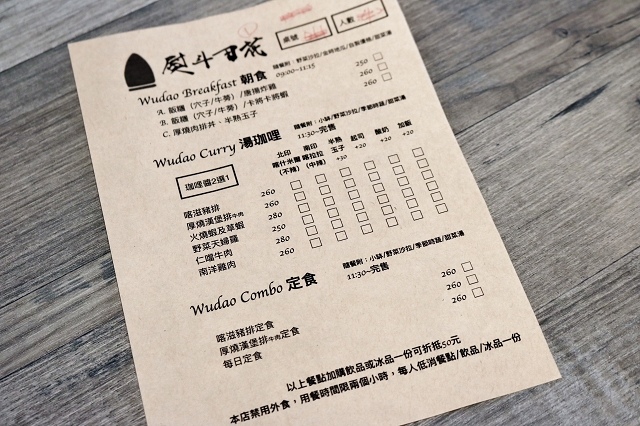 熨斗日花
桌號
人數
Wudao Breakfast 朝食
隨餐附：野菜沙拉/金時地瓜/自製優格/甜菜湯
09:00~11:15
A. 飯糰（穴子/牛蒡）/唐揚炸雞 250
B. 飯糰（穴子/牛蒡）/卡將卡將蝦 260
C. 厚燒肉排丼、半熟玉子 260
Wudao Curry 湯珈哩
隨餐附：小缽/野菜沙拉/季節時蔬/甜菜湯
11:30~完售
珈哩醬2選1
北印 喀什米爾 (不辣)
南印 喀拉拉 (中辣)
半熟 玉子 +30
起司 +20
酸奶 +20
加飯 +20
喀滋豬排 260
厚燒漢堡排牛肉 260
火燒蝦及草蝦 280
野菜天婦羅 250
仁噹牛肉 280
南洋雞肉 260
Wudao Combo 定食
隨餐附：小缽/野菜沙拉/季節時蔬/甜菜湯
11:30~完售
喀滋豬排定食 260
厚燒漢堡排牛肉定食 260
每日定食 260
以上餐點加購飲品或冰品一份可折抵50元
本店禁用外食，用餐時間限兩個小時，每人低消餐點/飲品/冰品一份